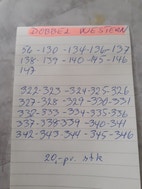 DOBBEL WESTERN
56-130-134-136-137
138-139-140-145-146
147
322-323-324-325-326
327-328-329-330-331
332-333-334-335-336
337-338-339-340-341
342-343-344-345-346
20,- pr. stk